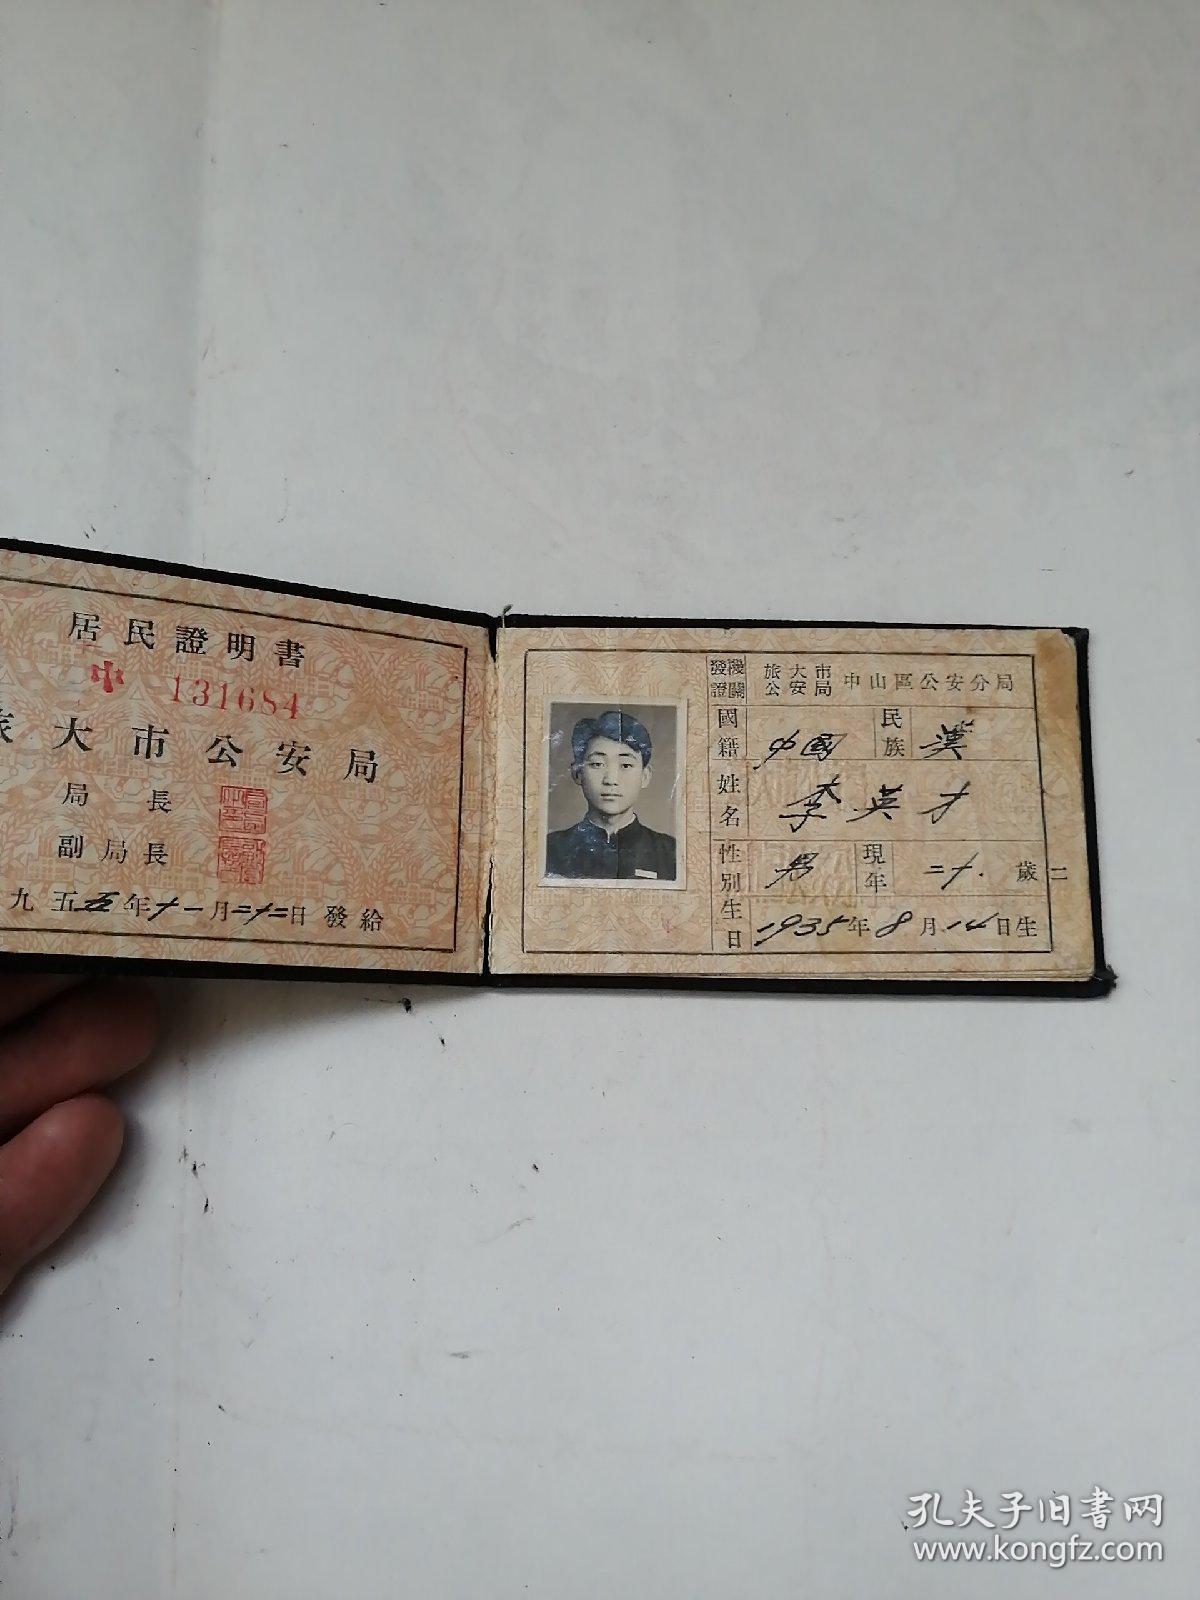 居民證明書
中 131684
旅大市公安局
局長
副局長
九五五年十一月二十二日發給
發證機關 旅大市公安局 中山區公安分局
國籍 中國 民族 漢
姓名 李英才
性別 男 現年 二十. 歲
生日 1935年8月14日生
二
孔夫子旧书网
www.kongfz.com